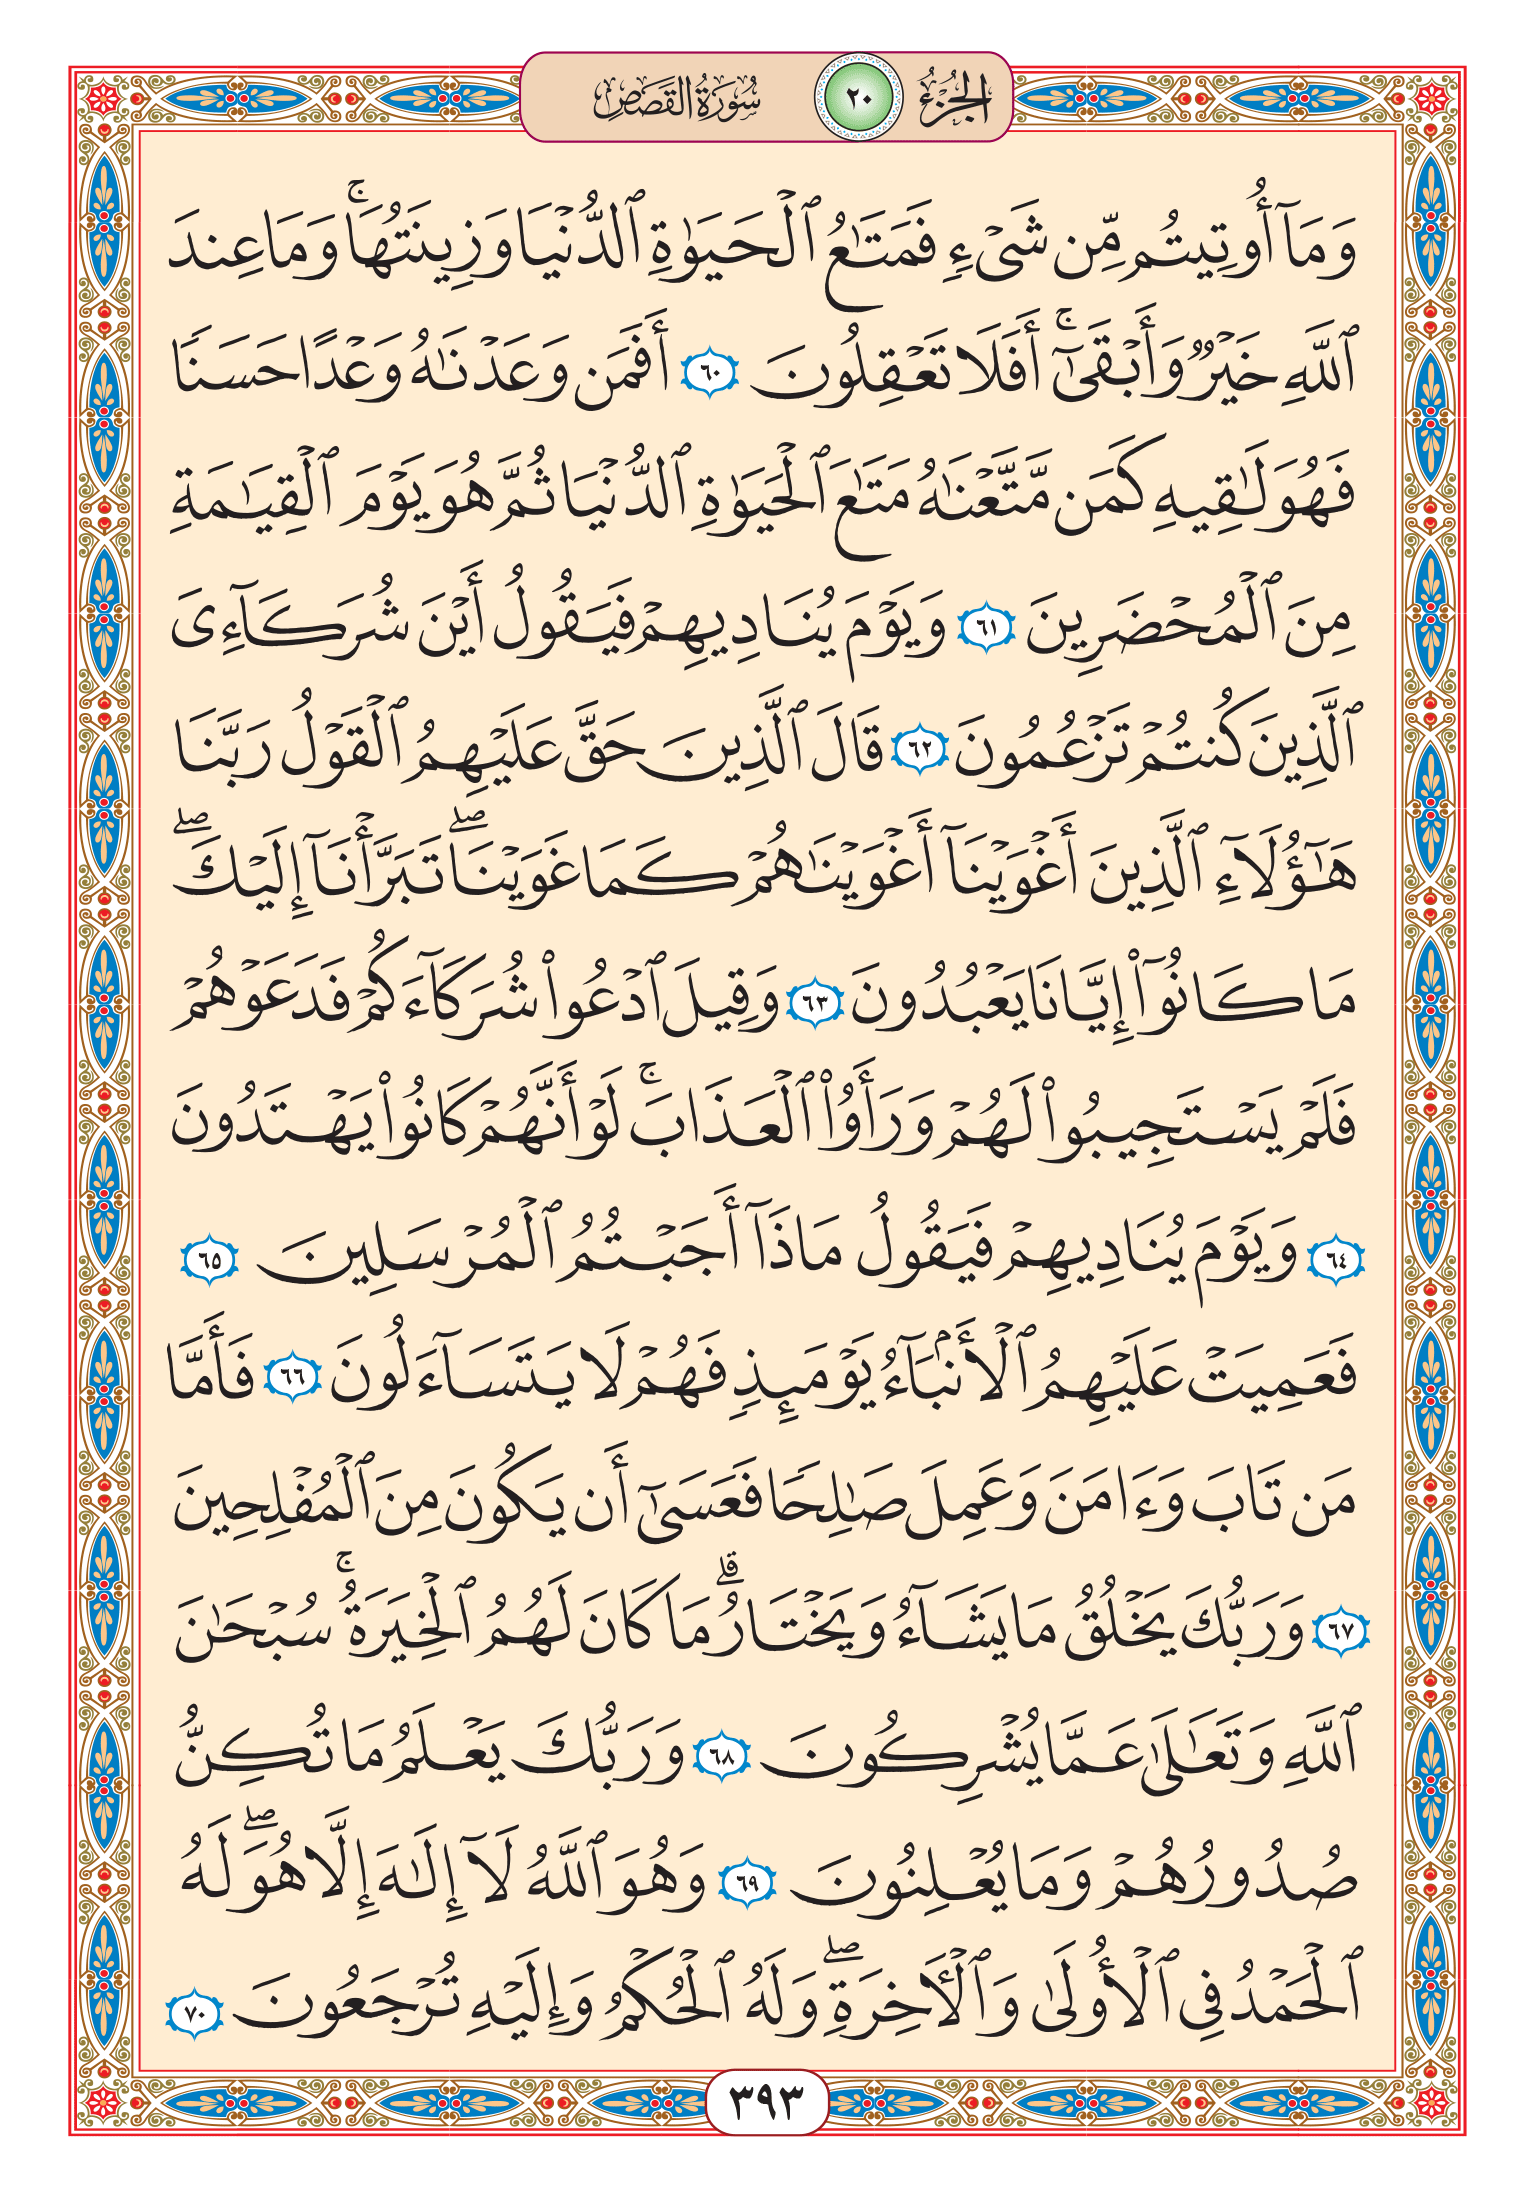 الجزء ٢٠ سورة القصص
وَمَآ أُوتِيتُم مِّن شَىْءٍ فَمَتَٰعُ ٱلْحَيَوٰةِ ٱلدُّنْيَا وَزِينَتُهَا ۚ وَمَا عِندَ
ٱللَّهِ خَيْرٌ وَأَبْقَىٰٓ ۚ أَفَلَا تَعْقِلُونَ ٦٠ أَفَمَن وَعَدْنَٰهُ وَعْدًا حَسَنًا
فَهُوَ لَٰقِيهِ كَمَن مَّتَّعْنَٰهُ مَتَٰعَ ٱلْحَيَوٰةِ ٱلدُّنْيَا ثُمَّ هُوَ يَوْمَ ٱلْقِيَٰمَةِ
مِنَ ٱلْمُحْضَرِينَ ٦١ وَيَوْمَ يُنَادِيهِمْ فَيَقُولُ أَيْنَ شُرَكَآءِىَ
ٱلَّذِينَ كُنتُمْ تَزْعُمُونَ ٦٢ قَالَ ٱلَّذِينَ حَقَّ عَلَيْهِمُ ٱلْقَوْلُ رَبَّنَا
هَٰٓؤُلَآءِ ٱلَّذِينَ أَغْوَيْنَآ أَغْوَيْنَٰهُمْ كَمَا غَوَيْنَا ۖ تَبَرَّأْنَآ إِلَيْكَ ۖ
مَا كَانُوٓا۟ إِيَّانَا يَعْبُدُونَ ٦٣ وَقِيلَ ٱدْعُوا۟ شُرَكَآءَكُمْ فَدَعَوْهُمْ
فَلَمْ يَسْتَجِيبُوا۟ لَهُمْ وَرَأَوُا۟ ٱلْعَذَابَ ۚ لَوْ أَنَّهُمْ كَانُوا۟ يَهْتَدُونَ
٦٤ وَيَوْمَ يُنَادِيهِمْ فَيَقُولُ مَاذَآ أَجَبْتُمُ ٱلْمُرْسَلِينَ ٦٥
فَعَمِيَتْ عَلَيْهِمُ ٱلْأَنۢبَآءُ يَوْمَئِذٍ فَهُمْ لَا يَتَسَآءَلُونَ ٦٦ فَأَمَّا
مَن تَابَ وَءَامَنَ وَعَمِلَ صَٰلِحًا فَعَسَىٰٓ أَن يَكُونَ مِنَ ٱلْمُفْلِحِينَ
٦٧ وَرَبُّكَ يَخْلُقُ مَا يَشَآءُ وَيَخْتَارُ ۗ مَا كَانَ لَهُمُ ٱلْخِيَرَةُ ۚ سُبْحَٰنَ
ٱللَّهِ وَتَعَٰلَىٰ عَمَّا يُشْرِكُونَ ٦٨ وَرَبُّكَ يَعْلَمُ مَا تُكِنُّ
صُدُورُهُمْ وَمَا يُعْلِنُونَ ٦٩ وَهُوَ ٱللَّهُ لَآ إِلَٰهَ إِلَّا هُوَ ۖ لَهُ
ٱلْحَمْدُ فِى ٱلْأُولَىٰ وَٱلْـَٔاخِرَةِ ۖ وَلَهُ ٱلْحُكْمُ وَإِلَيْهِ تُرْجَعُونَ ٧٠
٣٩٣